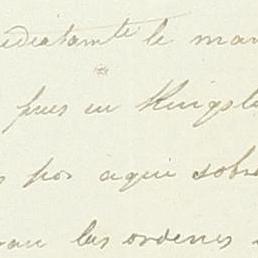 ediatamte le man
pues en Kingst
s por aqui sobre
an las ordenes